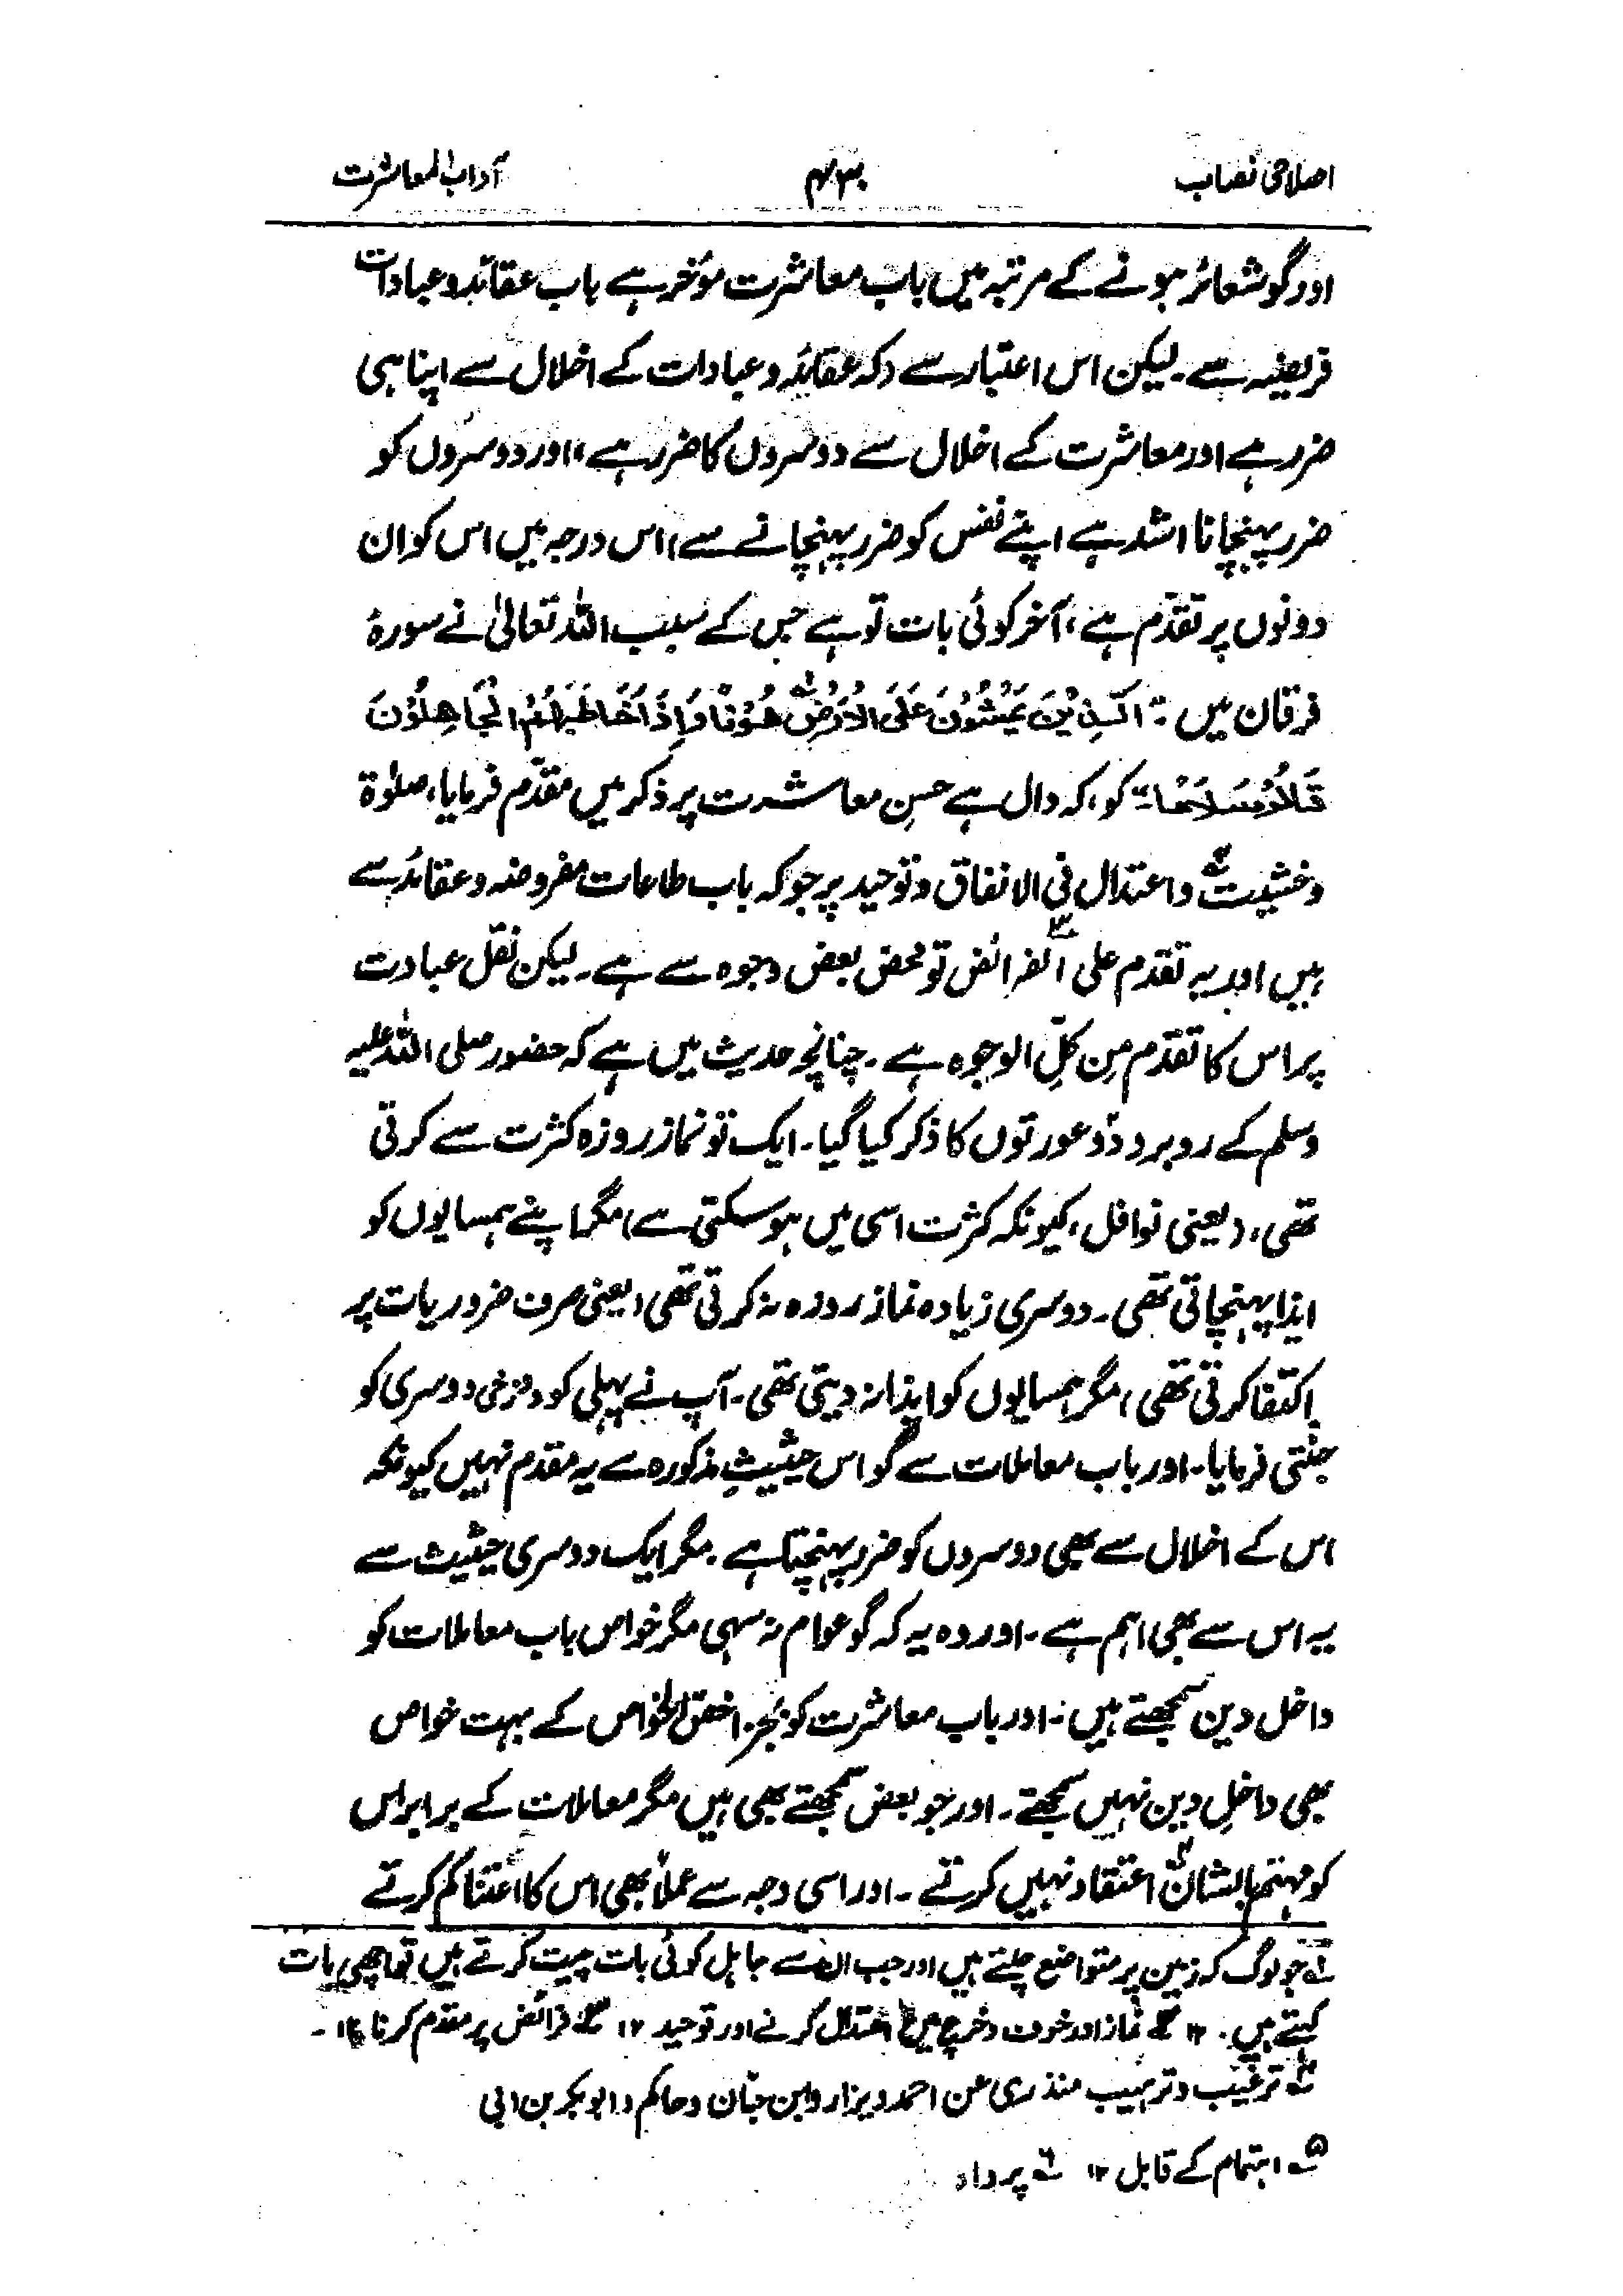 اصلاحی نصاب ۴۳۰ آداب المعاشرت
اور گو شعائر ہونے کے مرتبہ میں باب معاشرت مؤخر ہے باب عقائد و عبادات
فریضہ سے۔ لیکن اس اعتبار سے (کہ عقائد و عبادات کے اخلال سے اپنا ہی
ضرر ہے اور معاشرت کے اخلال سے دوسروں کا ضرر ہے، اور دوسروں کو
ضرر پہنچانا اشد ہے اپنے نفس کو ضرر پہنچانے سے) اس درجہ میں اس کو ان
دونوں پر تقدّم ہے، آخر کوئی بات تو ہے جس کے سبب اللہ تعالیٰ نے سورۂ
فرقان میں: اَلَّذِیْنَ یَمْشُوْنَ عَلَی الْاَرْضِ ھَوْنًا وَاِذَا خَاطَبَھُمُ الْجَاھِلُوْنَ
قَالُوْا سَلَامًا۔ کو، کہ دال ہے حسنِ معاشرت پر ذکر میں مقدّم فرمایا، صلوٰۃ
و خشیت و اعتدال فی الانفاق و توحید پر جو کہ باب طاعات مفروضہ و عقائد سے
ہیں اور یہ تقدم علی الفرائض تو محض بعض وجوہ سے ہے۔ لیکن نفل عبادت
پر اس کا تقدّم مِن کلِّ الوجوہ ہے۔ چنانچہ حدیث میں ہے کہ حضور صلی اللہ علیہ
وسلم کے روبرو دو عورتوں کا ذکر کیا گیا۔ ایک تو نماز روزہ کثرت سے کرتی
تھی، (یعنی نوافل، کیونکہ کثرت اسی میں ہوسکتی ہے) مگر اپنے ہمسایوں کو
ایذا پہنچاتی تھی۔ دوسری زیادہ نماز روزہ نہ کرتی تھی (یعنی صرف ضروریات پر
اکتفا کرتی تھی، مگر ہمسایوں کو ایذا نہ دیتی تھی۔ آپ نے پہلی کو دوزخی دوسری کو
جنّتی فرمایا۔ اور باب معاملات سے گو اس حیثیتِ مذکورہ سے یہ مقدم نہیں کیونکہ
اس کے اخلال سے بھی دوسروں کو ضرر پہنچتا ہے۔ مگر ایک دوسری حیثیت سے
یہ اس سے بھی اہم ہے۔ اور وہ یہ کہ گو عوام نہ سہی مگر خواص باب معاملات کو
داخل دین سمجھتے ہیں۔ اور باب معاشرت کو بجز اخص الخواص کے بہت خواص
بھی داخلِ دین نہیں سمجھتے۔ اور جو بعض سمجھتے بھی ہیں مگر معاملات کے برابر اس
کو مہتم بالشان اعتقاد نہیں کرتے۔ اور اسی وجہ سے عملاً بھی اس کا اعتنا کم کرتے
۱؎ جو لوگ کہ زمین پر متواضع چلتے ہیں اور جب ان سے جاہل کوئی بات چیت کرتے ہیں تو اچھی بات
کہتے ہیں۔ ۱۲ ۲؎ نماز اور خوف و خرچ میں اعتدال کرنے اور توحید ۱۲ ۳؎ فرائض پر مقدم کرنا ۱۲۔
۴؎ ترغیب و ترہیب منذری عن احمد و بزار و ابن حبّان و حاکم و ابوبکر بن ابی
۵؎ اہتمام کے قابل ۱۲ ۶؎ پرواہ